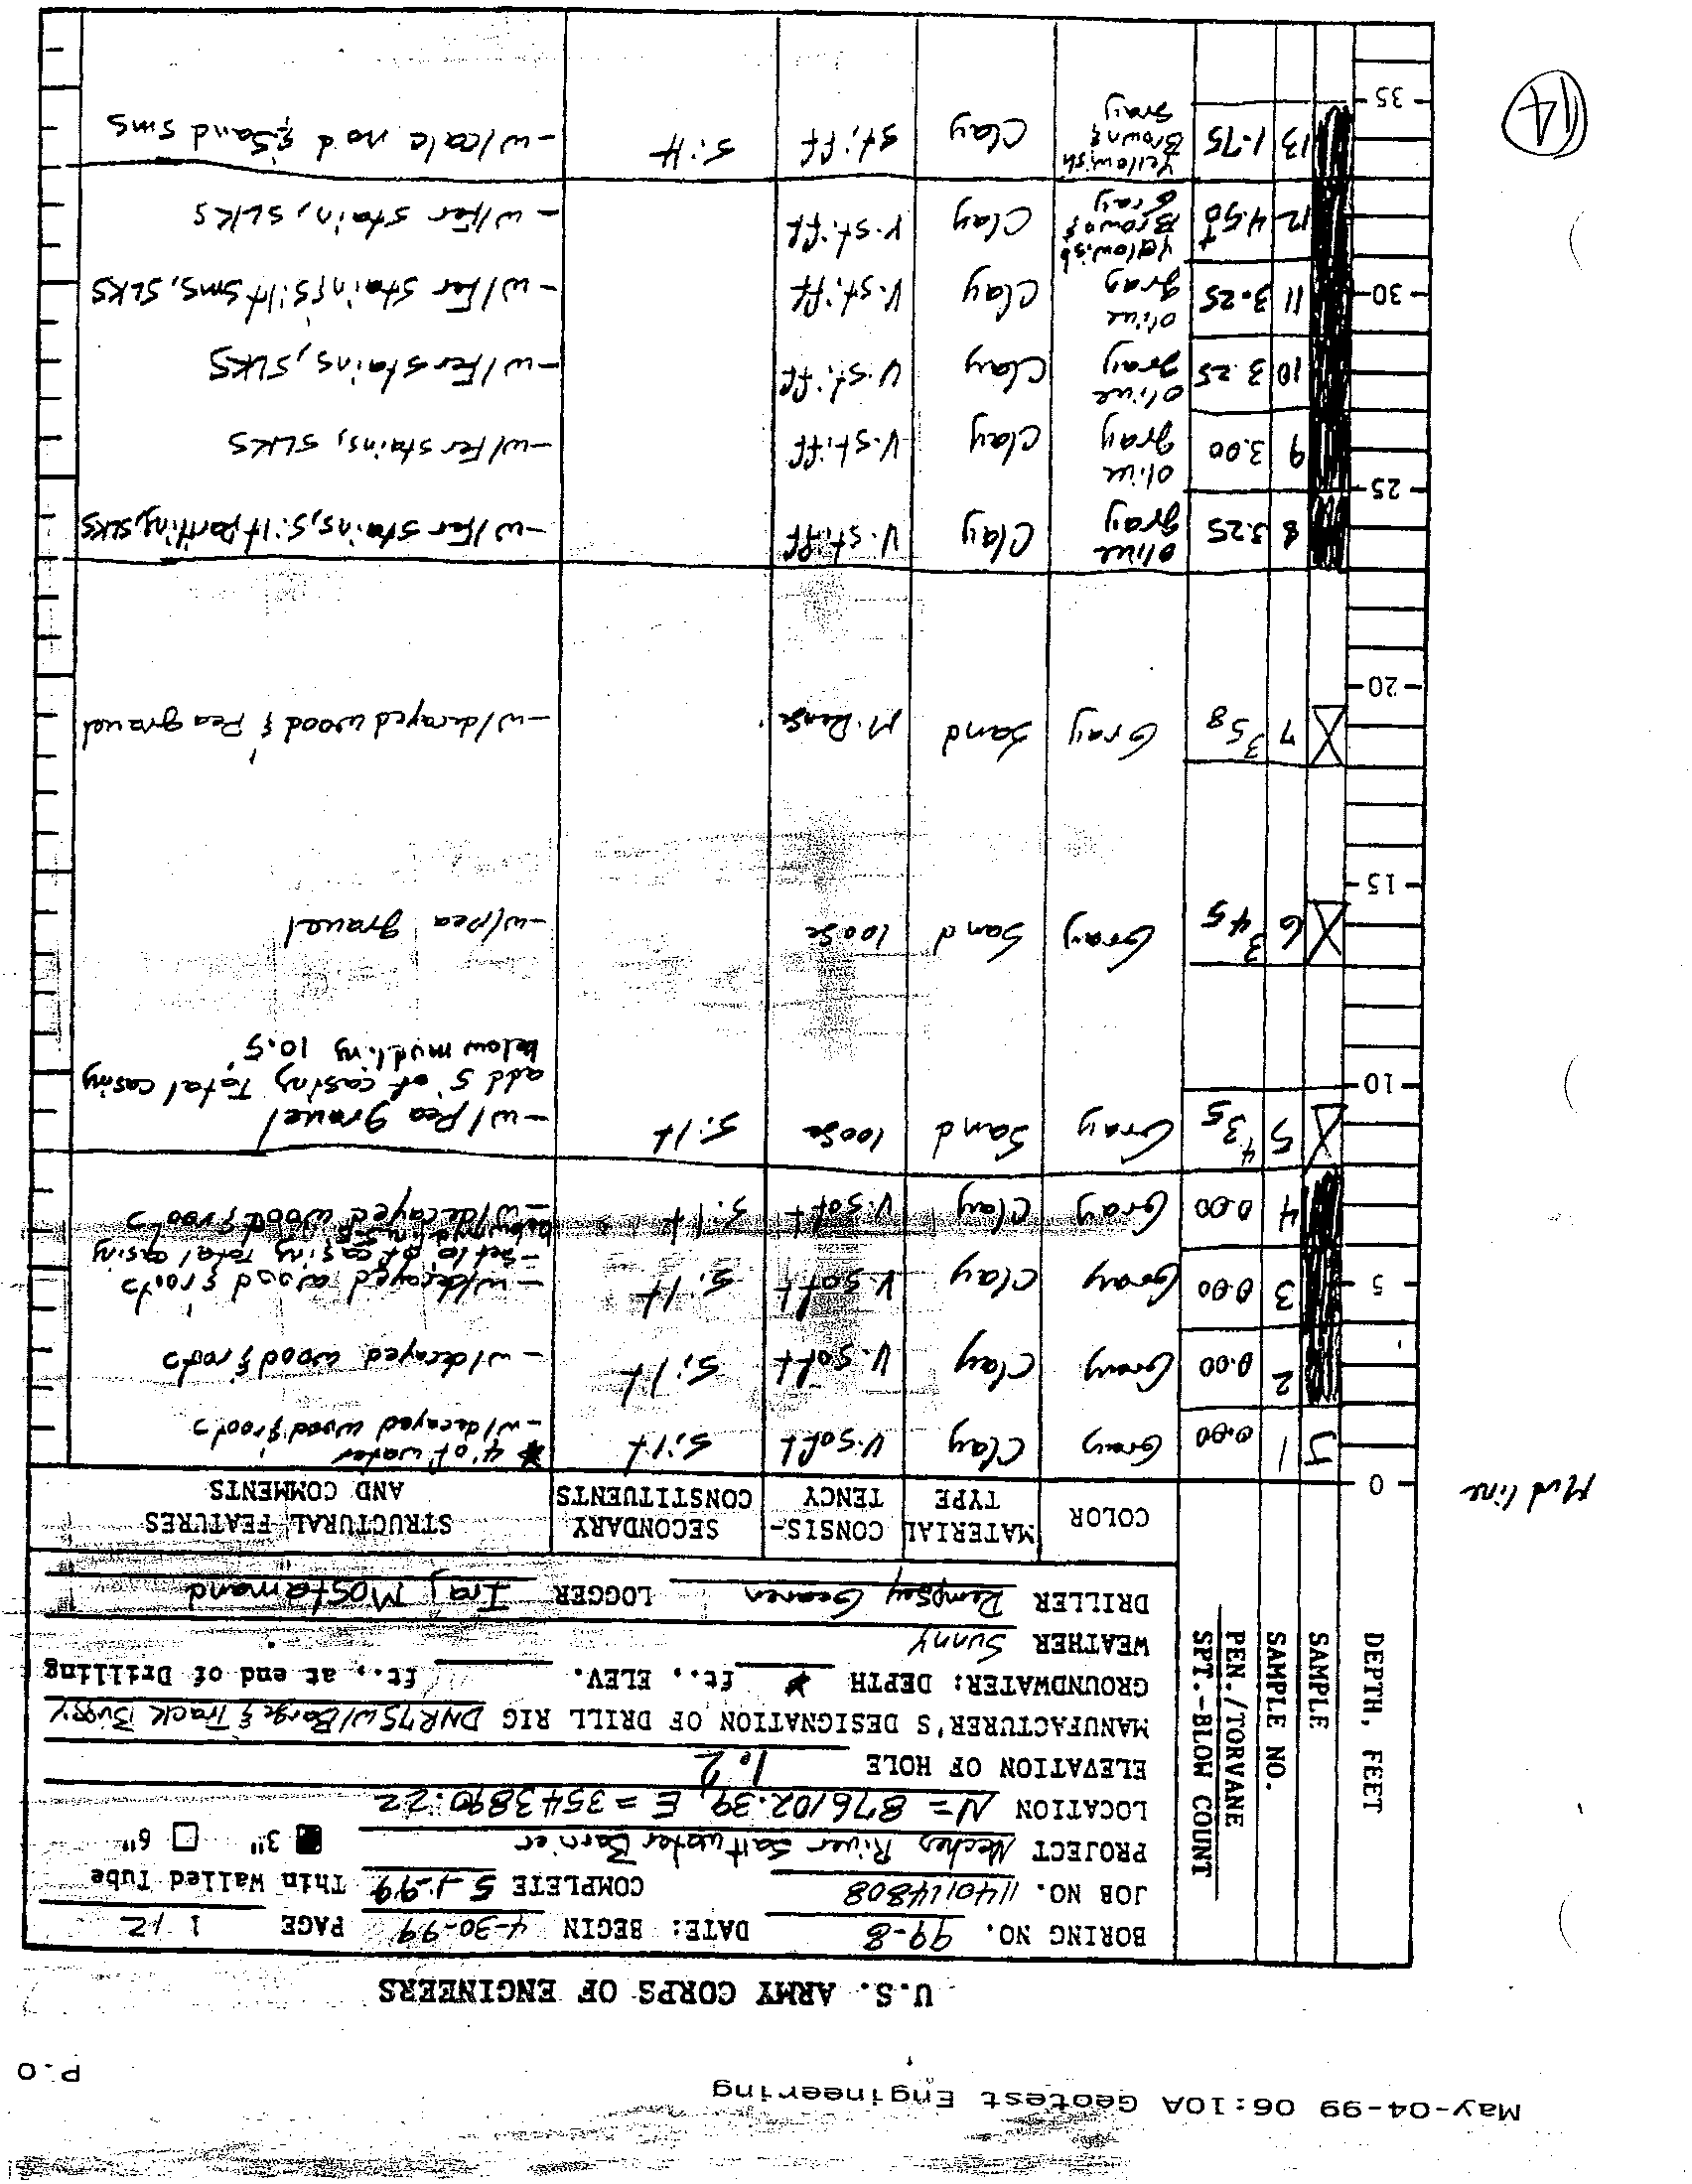 May-04-99 06:10A Geotest Engineering
P.0
U.S. ARMY CORPS OF ENGINEERS
BORING NO. 99-8 DATE: BEGIN 4-30-99 PAGE 1 12
JOB NO. 1140114808 COMPLETE 5-1-99 Thin Walled Tube
PROJECT Neches River Saltwater Barrier 3" 6"
LOCATION N= 876102.39, E = 3543890.22
ELEVATION OF HOLE 1.2
MANUFACTURER'S DESIGNATION OF DRILL RIG DNR75W/Barge & Track Buggy
GROUNDWATER: DEPTH * ft., ELEV. ft., at end of Drilling
WEATHER Sunny
DRILLER Dempsey Gearen LOGGER Iraj Mostamand
DEPTH, FEET
SAMPLE
SAMPLE NO.
PEN./TORVANE
SPT.-BLOW COUNT
COLOR
MATERIAL TYPE
CONSIS-TENCY
SECONDARY CONSTITUENTS
STRUCTURAL FEATURES AND COMMENTS
Mud line
0
* 4' of water
J 1 0.00 Gray Clay V.Soft Silt -w/decayed wood & roots
2 0.00 Gray Clay V.Soft Silt -w/decayed wood & roots
5
3 0.00 Gray Clay V.Soft Silt -w/decayed wood & roots
-Set 10' of casing Total casing
below mudline
4 0.00 Gray Clay V.Soft Silt -w/decayed wood & roots
5 4 3 5 Gray Sand loose Silt -w/Pea gravel
add 5' of casing Total casing
below mudling 10.5'
10
6 3 4 5 Gray Sand loose -w/pea gravel
15
7 3 5 8 Gray Sand M.Dense -w/decayed wood & Pea gravel
20
8 3.25 olive gray Clay V.stiff -w/fer stains, silt parthing, SLKS
25
9 3.00 olive gray Clay V.stiff -w/fer stains, SLKS
10 3.25 olive gray Clay V.stiff -w/fer stains, SLKS
11 3.25 olive gray Clay V.stiff -w/fer stain, silt sms, SLKS
30
12 4.50+ Yellowish Brown & Gray Clay V.stiff -w/fer stain, SLKS
13 1.75 Yellowish Brown & gray Clay stiff silt -w/calc nod & sand sms
35
14